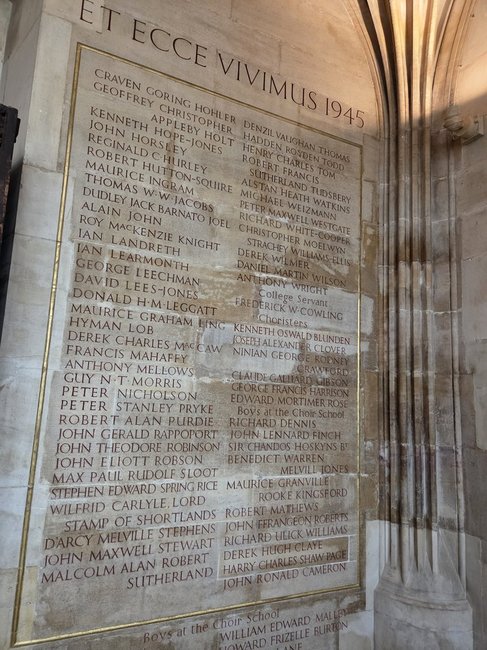 ET ECCE VIVIMUS 1945
CRAVEN GORING HOHLER
GEOFFREY CHRISTOPHER
APPLEBY HOLT
KENNETH HOPE-JONES
JOHN HORSLEY
REGINALD C. HURLEY
ROBERT HUTTON-SQUIRE
MAURICE INGRAM
THOMAS·W·W·JACOBS
DUDLEY JACK BARNATO JOEL
ALAN JOHN
ROY MACKENZIE KNIGHT
IAN LANDRETH
IAN LEARMONTH
GEORGE LEECHMAN
DAVID LEES-JONES
DONALD·H·M·LEGGATT
MAURICE GRAHAM LING
HYMAN LOB
DEREK CHARLES MACCAW
FRANCIS MAHAFFY
ANTHONY MELLOWS
GUY·N·T·MORRIS
PETER NICHOLSON
PETER STANLEY PRYKE
ROBERT ALAN PURDIE
JOHN GERALD RAPPOPORT
JOHN THEODORE ROBINSON
JOHN ELIOTT ROBSON
MAX PAUL RUDOLF SLOOT
STEPHEN EDWARD SPRING RICE
WILFRID CARLYLE, LORD
STAMP OF SHORTLANDS
D'ARCY MELVILLE STEPHENS
JOHN MAXWELL STEWART
MALCOLM ALAN ROBERT
SUTHERLAND
DENZIL VAUGHAN THOMAS
HADDEN ROYDEN TODD
HENRY CHARLES TOM
ROBERT FRANCIS
SUTHERLAND TUDSBERY
ALSTAN HEATH WATKINS
MICHAEL WEIZMANN
PETER MAXWELL WESTGATE
RICHARD WHITE-COOPER
CHRISTOPHER MOELWYN
STRACHEY WILLIAMS-ELLIS
DEREK WILMER
DANIEL MARTIN WILSON
ANTHONY WRIGHT
College Servant
FREDERICK·W·COWLING
Choristers
KENNETH OSWALD BLUNDEN
JOSEPH ALEXANDER CLOVER
NINIAN GEORGE RODNEY
CRAWFORD
CLAUDE GALHARD GIBSON
GEORGE FRANCIS HARRISON
EDWARD MORTIMER ROSE
Boys at the Choir School
RICHARD DENNIS
JOHN LENNARD FINCH
SIR CHANDOS HOSKYNS Bt
BENEDICT WARREN
MELVILL JONES
MAURICE GRANVILLE
ROOKE KINGSFORD
ROBERT MATHEWS
JOHN FFRANGEON ROBERTS
RICHARD ULICK WILLIAMS
DEREK HUGH CLAYE
HARRY CHARLES SHAW PAGE
JOHN RONALD CAMERON
Boys at the Choir School
WILLIAM EDWARD
HOWARD FRIZELLE BURTON